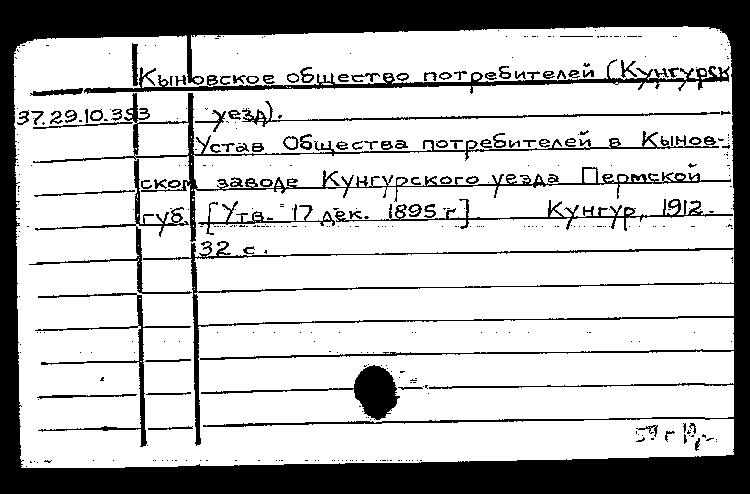 Кыновское общество потребителей (Кунгурск
37.29.10.353 уезд).
Устав Общества потребителей в Кынов-
ском заводе Кунгурского уезда Пермской
губ. [Утв. 17 дек. 1895 г]. Кунгур, 1912.
32 с.
59 г